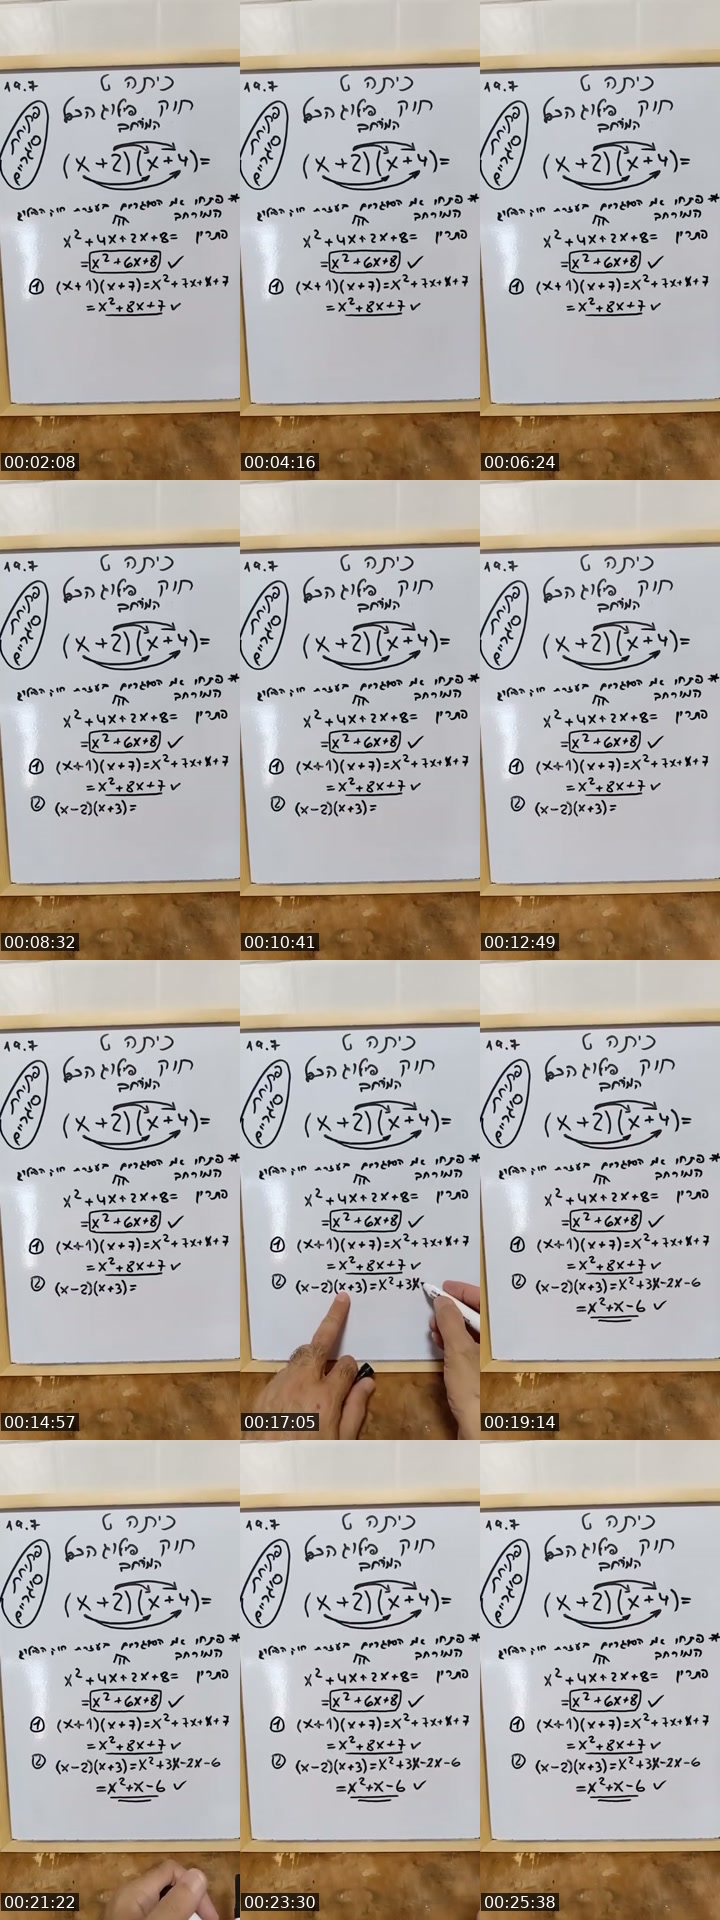 19.7 כיתה ט
חוק פילוג הכפל
המורחב
פתיחת
סוגריים
(x+2)(x+4)=
* פתחו את הסוגריים בעזרת חוק הפילוג
המורחב
x²+4x+2x+8= פתרון
=x²+6x+8 ✓
① (x+1)(x+7)=x²+7x+x+7
=x²+8x+7 ✓
00:02:08
19.7 כיתה ט
חוק פילוג הכפל
המורחב
פתיחת
סוגריים
(x+2)(x+4)=
* פתחו את הסוגריים בעזרת חוק הפילוג
המורחב
x²+4x+2x+8= פתרון
=x²+6x+8 ✓
① (x+1)(x+7)=x²+7x+x+7
=x²+8x+7 ✓
00:04:16
19.7 כיתה ט
חוק פילוג הכפל
המורחב
פתיחת
סוגריים
(x+2)(x+4)=
* פתחו את הסוגריים בעזרת חוק הפילוג
המורחב
x²+4x+2x+8= פתרון
=x²+6x+8 ✓
① (x+1)(x+7)=x²+7x+x+7
=x²+8x+7 ✓
00:06:24
19.7 כיתה ט
חוק פילוג הכפל
המורחב
פתיחת
סוגריים
(x+2)(x+4)=
* פתחו את הסוגריים בעזרת חוק הפילוג
המורחב
x²+4x+2x+8= פתרון
=x²+6x+8 ✓
① (x+1)(x+7)=x²+7x+x+7
=x²+8x+7 ✓
② (x-2)(x+3)=
00:08:32
19.7 כיתה ט
חוק פילוג הכפל
המורחב
פתיחת
סוגריים
(x+2)(x+4)=
* פתחו את הסוגריים בעזרת חוק הפילוג
המורחב
x²+4x+2x+8= פתרון
=x²+6x+8 ✓
① (x+1)(x+7)=x²+7x+x+7
=x²+8x+7 ✓
② (x-2)(x+3)=
00:10:41
19.7 כיתה ט
חוק פילוג הכפל
המורחב
פתיחת
סוגריים
(x+2)(x+4)=
* פתחו את הסוגריים בעזרת חוק הפילוג
המורחב
x²+4x+2x+8= פתרון
=x²+6x+8 ✓
① (x+1)(x+7)=x²+7x+x+7
=x²+8x+7 ✓
② (x-2)(x+3)=
00:12:49
19.7 כיתה ט
חוק פילוג הכפל
המורחב
פתיחת
סוגריים
(x+2)(x+4)=
* פתחו את הסוגריים בעזרת חוק הפילוג
המורחב
x²+4x+2x+8= פתרון
=x²+6x+8 ✓
① (x+1)(x+7)=x²+7x+x+7
=x²+8x+7 ✓
② (x-2)(x+3)=
00:14:57
19.7 כיתה ט
חוק פילוג הכפל
המורחב
פתיחת
סוגריים
(x+2)(x+4)=
* פתחו את הסוגריים בעזרת חוק הפילוג
המורחב
x²+4x+2x+8= פתרון
=x²+6x+8 ✓
① (x+1)(x+7)=x²+7x+x+7
=x²+8x+7 ✓
② (x-2)(x+3)=x²+3x
00:17:05
19.7 כיתה ט
חוק פילוג הכפל
המורחב
פתיחת
סוגריים
(x+2)(x+4)=
* פתחו את הסוגריים בעזרת חוק הפילוג
המורחב
x²+4x+2x+8= פתרון
=x²+6x+8 ✓
① (x+1)(x+7)=x²+7x+x+7
=x²+8x+7 ✓
② (x-2)(x+3)=x²+3x-2x-6
=x²+x-6 ✓
00:19:14
19.7 כיתה ט
חוק פילוג הכפל
המורחב
פתיחת
סוגריים
(x+2)(x+4)=
* פתחו את הסוגריים בעזרת חוק הפילוג
המורחב
x²+4x+2x+8= פתרון
=x²+6x+8 ✓
① (x+1)(x+7)=x²+7x+x+7
=x²+8x+7 ✓
② (x-2)(x+3)=x²+3x-2x-6
=x²+x-6 ✓
00:21:22
19.7 כיתה ט
חוק פילוג הכפל
המורחב
פתיחת
סוגריים
(x+2)(x+4)=
* פתחו את הסוגריים בעזרת חוק הפילוג
המורחב
x²+4x+2x+8= פתרון
=x²+6x+8 ✓
① (x+1)(x+7)=x²+7x+x+7
=x²+8x+7 ✓
② (x-2)(x+3)=x²+3x-2x-6
=x²+x-6 ✓
00:23:30
19.7 כיתה ט
חוק פילוג הכפל
המורחב
פתיחת
סוגריים
(x+2)(x+4)=
* פתחו את הסוגריים בעזרת חוק הפילוג
המורחב
x²+4x+2x+8= פתרון
=x²+6x+8 ✓
① (x+1)(x+7)=x²+7x+x+7
=x²+8x+7 ✓
② (x-2)(x+3)=x²+3x-2x-6
=x²+x-6 ✓
00:25:38